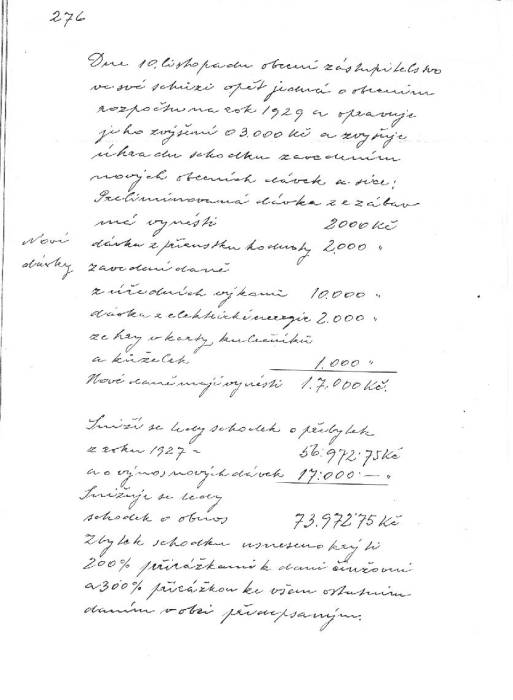 276
Dne 10. listopadu obecní zastupitelstvo
ve své schůzi opět jedná o obecním
rozpočtu na rok 1929 a opravuje
jeho zvýšení o 3.000 Kč a zvyšuje
úhradu schodku zavedením
nových obecních dávek a sice:
Preliminovaná dávka ze zábav
má vynésti 2000 Kč
Nové dávky
dávka z přírustku hodnoty 2.000 "
zavedení daně
z úředních výkonů 10.000 "
dávka z elektrické energie 2.000 "
ze hry v karty, kulečníků
a kuželek 1.000 "
Nové daně mají vynésti 17.000 Kč.
Sníží se tedy schodek o přebytek
z roku 1927 – 56.972.75 Kč
a o výnos nových dávek 17.000.— "
Snižuje se tedy
schodek o obnos 73.972.75 Kč
Zbytek schodku usneseno krýti
200% přirážkami k dani činžovní
a 300% přirážkou ke všem ostatním
daním v obci předepsaným.